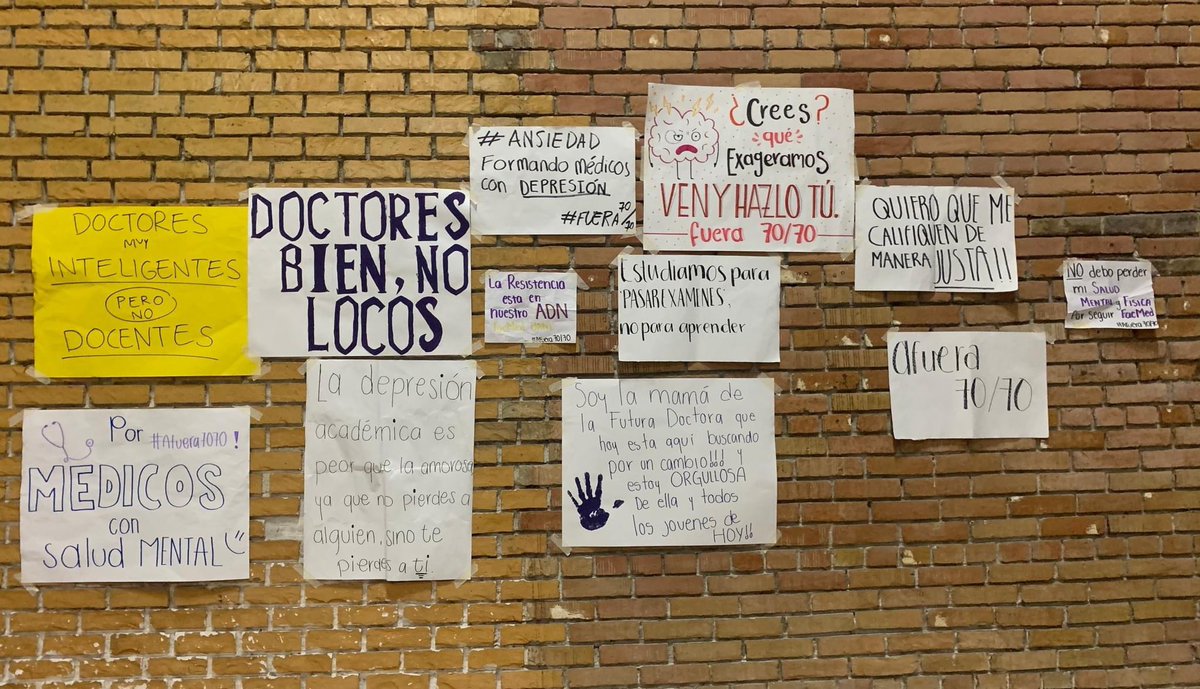 DOCTORES
MUY
INTELIGENTES
PERO
NO
DOCENTES
DOCTORES
BIEN, NO
LOCOS
# ANSIEDAD
Formando médicos
con DEPRESIÓN
#FUERA 70/70
¿Crees?
qué
Exageramos
VEN Y HAZLO TÚ.
fuera 70/70
QUIERO QUE ME
CALIFIQUEN DE
MANERA JUSTA!!!
NO debo perder
mi SALUD
MENTAL y FISICA
Por seguir FacMed
La Resistencia
esta en
nuestro ADN
#Afuera70/70
Estudiamos para
"PASAR EXÁMENES",
no para aprender
Afuera
70/70
Por #Afuera7070!
MEDICOS
con
salud MENTAL
La depresión
académica es
peor que la amorosa
ya que no pierdes a
alguien, sino te
pierdes a ti.
Soy la mamá de
la Futura Doctora que
hoy esta aquí buscando
por un cambio!!! y
estoy ORGULLOSA
De ella y todos
los jovenes de
HOY!!